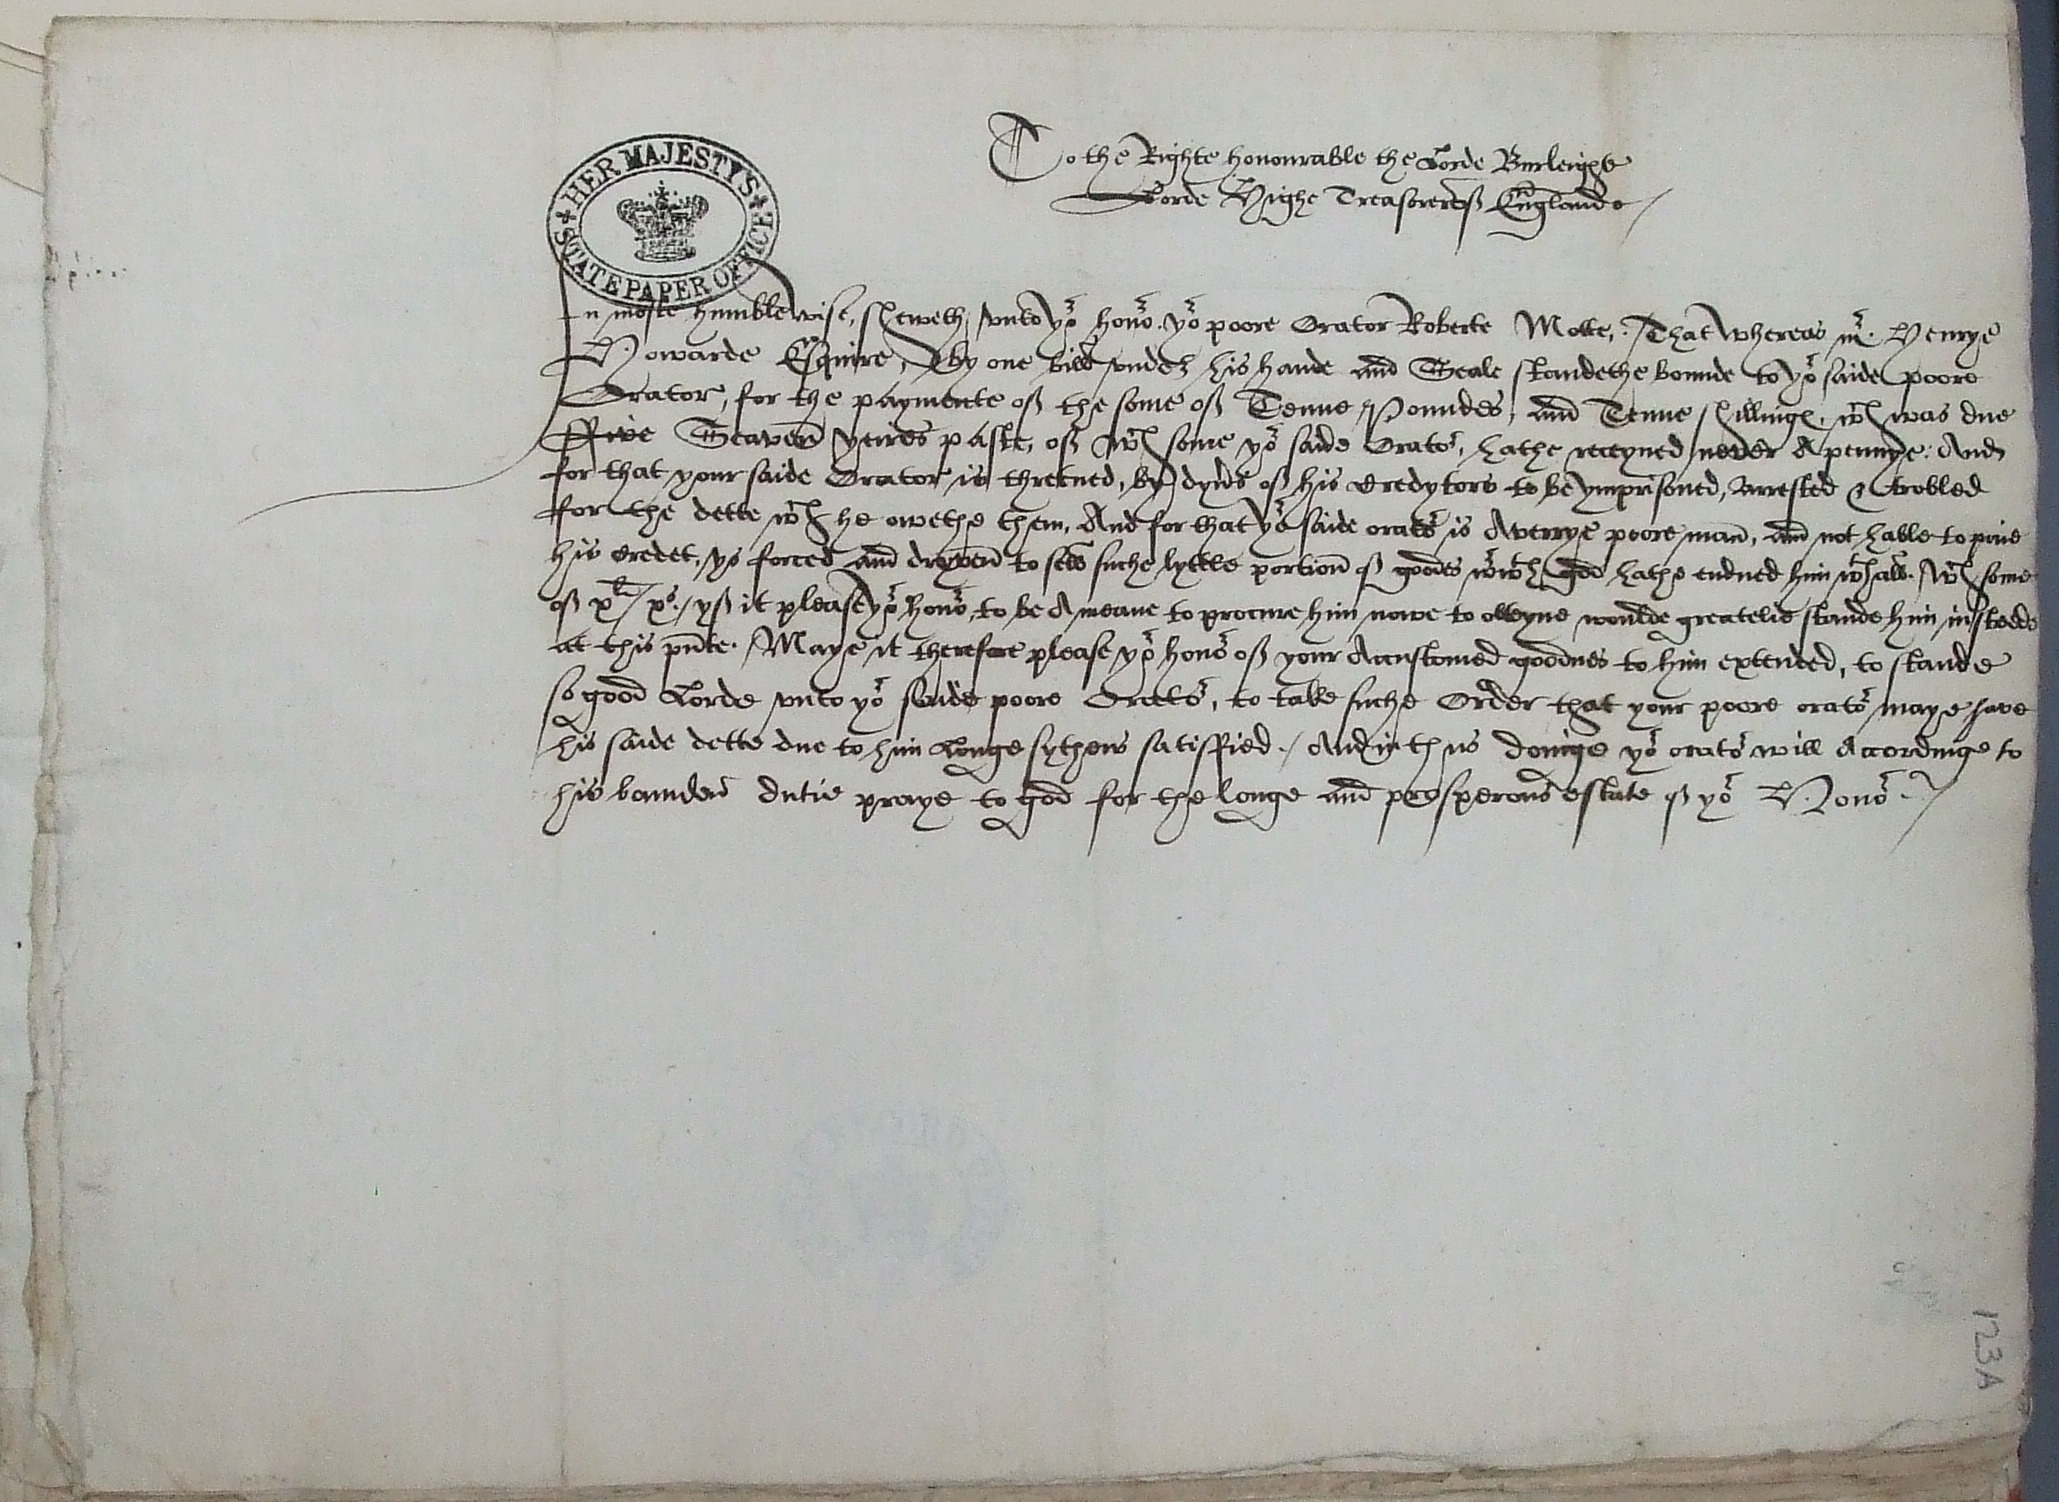 HER MAJESTYS
STATE PAPER OFFICE
To the Righte honourable the Lorde Burleighe
Lorde Highe Treasorer of Englande
In moste humble wise, sheweth vnto yor honor. yor poore Orator Roberte Motte, That whereas mr. Henrye
Howarde Esquire, by one bill vnder his hande and Seale standethe bounde to yor saide poore
Orator, for the paymente of the some of Tenne Poundes, and Tenne shillinges, wch was due
ffive Seaven yeires paste, of wch some yor saide Orator, hathe receyued never A pennye: And
for that your saide Orator is thretned, by dyvers of his Credytors to be ymprisoned, Arrested & trobled
for the dette wch he owethe them, And for that yor saide orator is A verrye poore man, and not hable to paie
his credet, ys forced and dryven to sell suche lyttle portion of goodes wch god hathe endued him wthall. Wch some
of xli / xs. / yf it please yor honor, to be A meane to procure him nowe to obteyne woulde greatelie stande him in stedde
at this pnte. / Maye it therefore please yor honor of your Accustomed goodnes to him extended, to stande
so good Lorde vnto yor saide poore Orator, to take suche Order that your poore orator maye have
his saide dette due to him Longe sythens satisffied. / And in thus doinge yor orator will Accordinge to
his bounden dutie praye to god for the longe and prosperous estate of yor Honor. /
123A